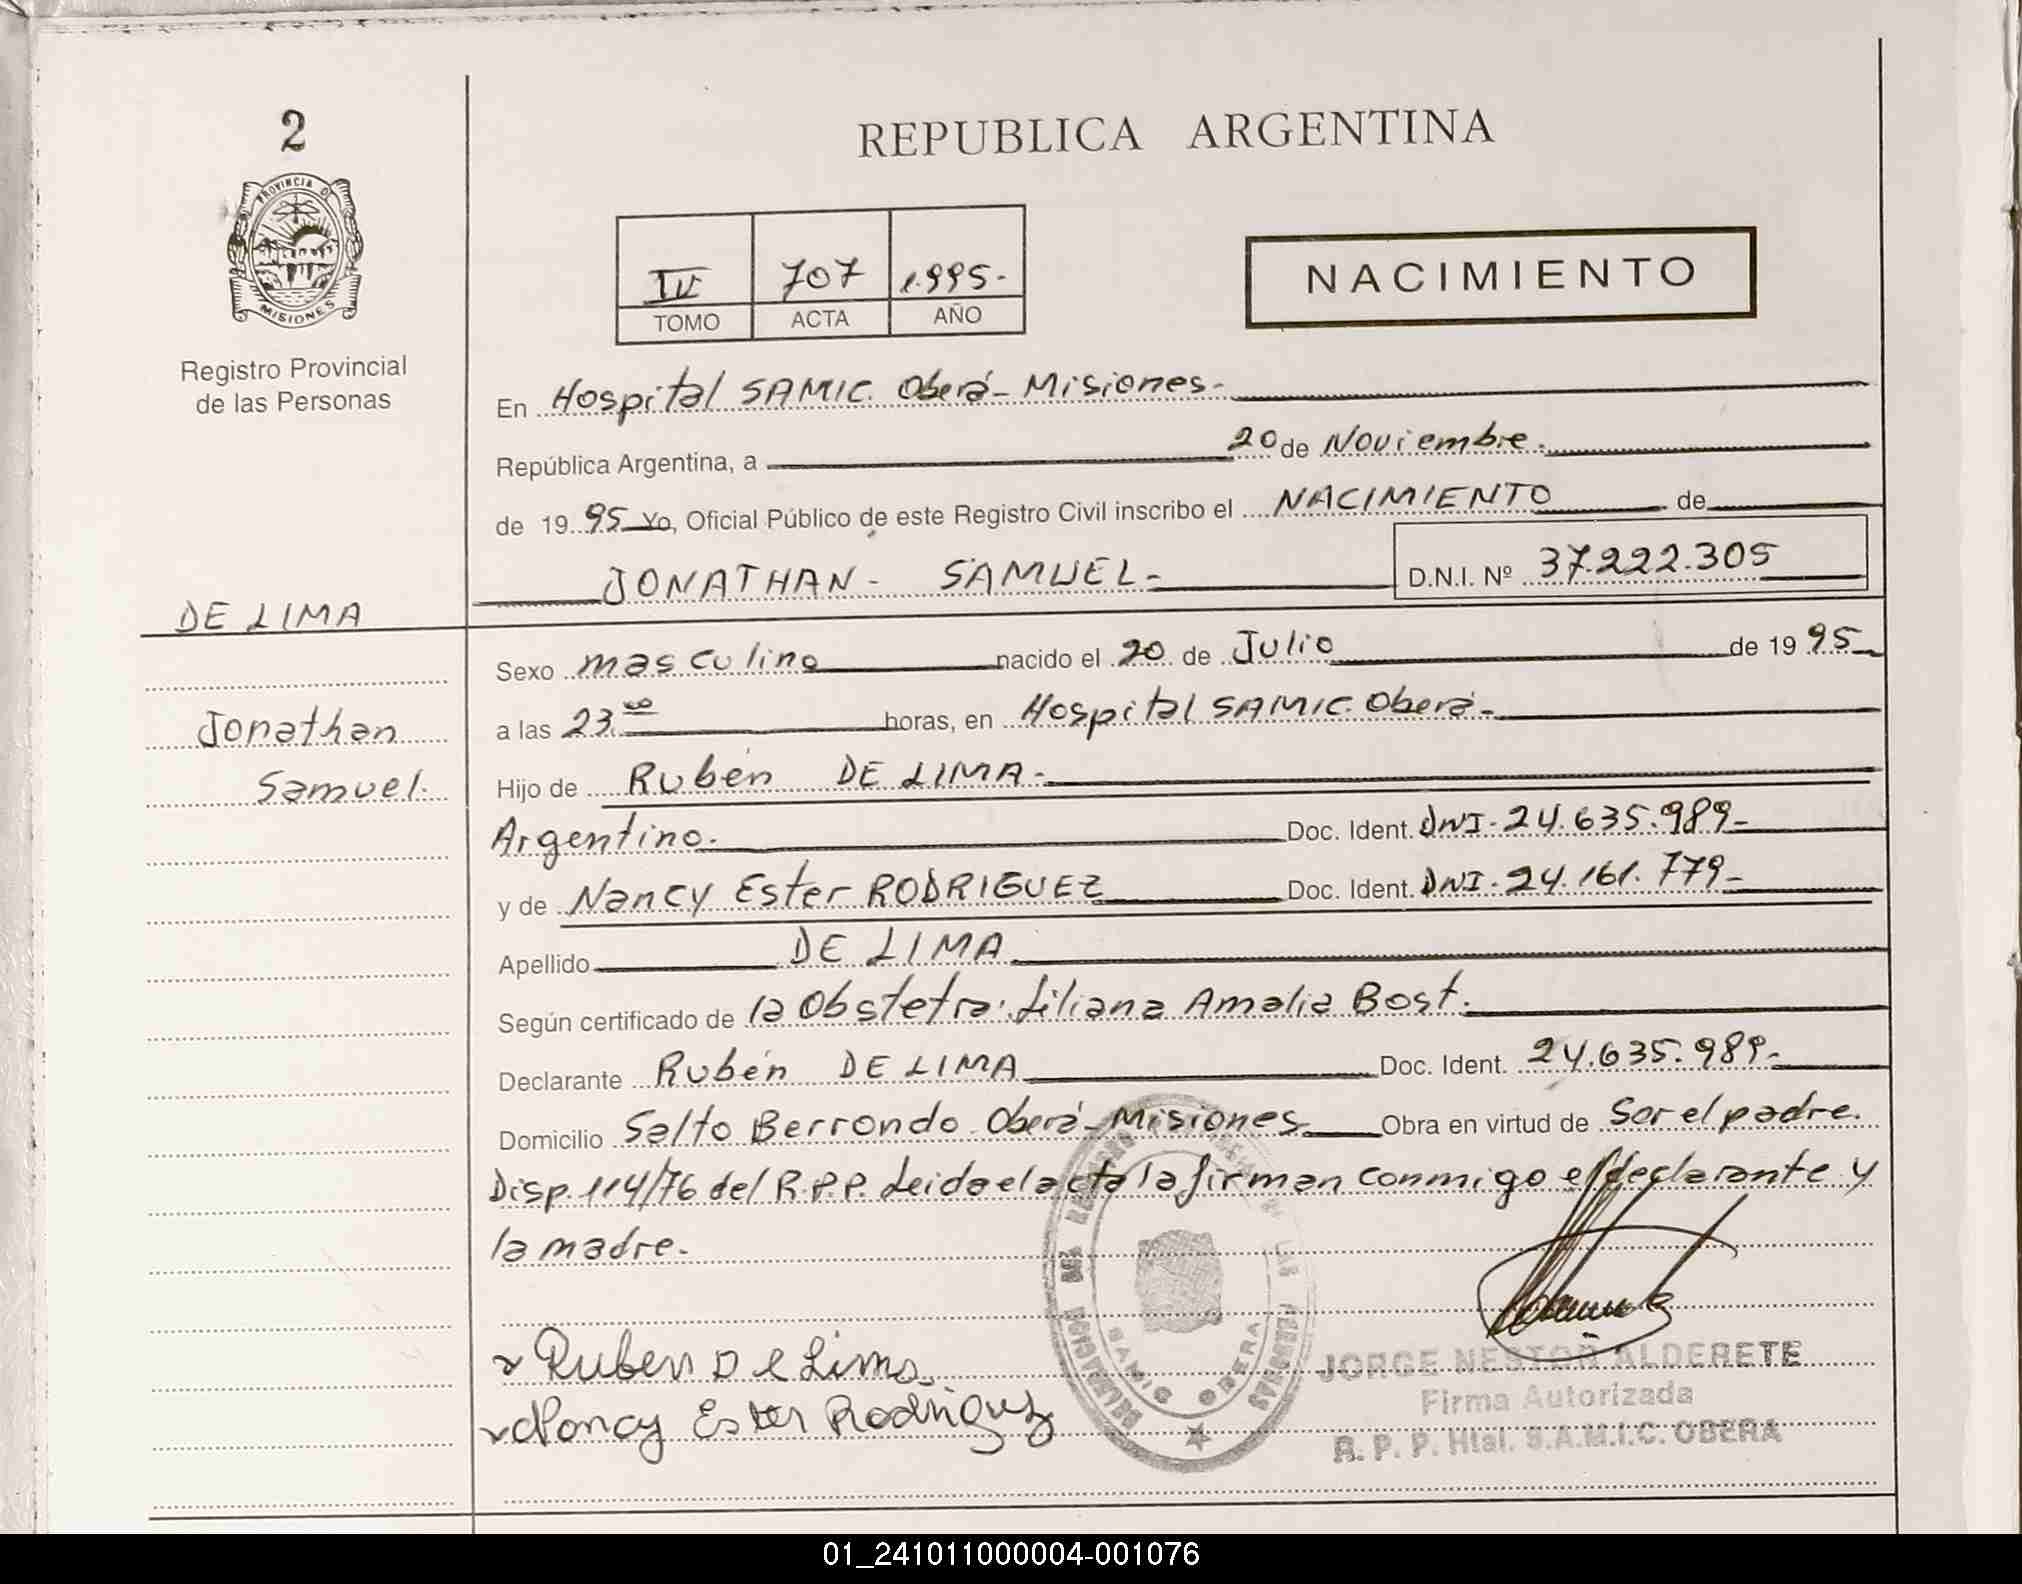 2
REPUBLICA ARGENTINA
PROVINCIA D
MISIONES
Registro Provincial
de las Personas
IV 707 1.995.-
TOMO ACTA AÑO
NACIMIENTO
En Hospital SAMIC. Oberá - Misiones.-
República Argentina, a 20 de Noviembre.
de 1995 Yo, Oficial Público de este Registro Civil inscribo el NACIMIENTO de
JONATHAN - SAMUEL.- D.N.I. Nº 37.222.305
DE LIMA
Jonathan
Samuel.
Sexo masculino nacido el 20 de Julio de 1995
a las 23.00 horas, en Hospital SAMIC. Oberá.-
Hijo de Rubén DE LIMA.-
Argentino. Doc. Ident. DNI. 24.635.989-
y de Nancy Ester RODRIGUEZ Doc. Ident. DNI. 24.161.779-
Apellido DE LIMA
Según certificado de la Obstetra: Liliana Amalia Bost.
Declarante Rubén DE LIMA Doc. Ident. 24.635.989.-
Domicilio Salto Berrondo Oberá - Misiones Obra en virtud de Ser el padre.
Disp. 114/76 del R.P.P. Leida el acta la firman conmigo el declarante y
la madre.-
Ruben De Lima
Nancy Ester Rodriguez
DELEGACION DEL REGISTRO DE LAS PERSONAS
SAMIC OBERA
JORGE NESTOR ALDERETE
Firma Autorizada
R. P. P. Htal. S.A.M.I.C. OBERA
01_241011000004-001076